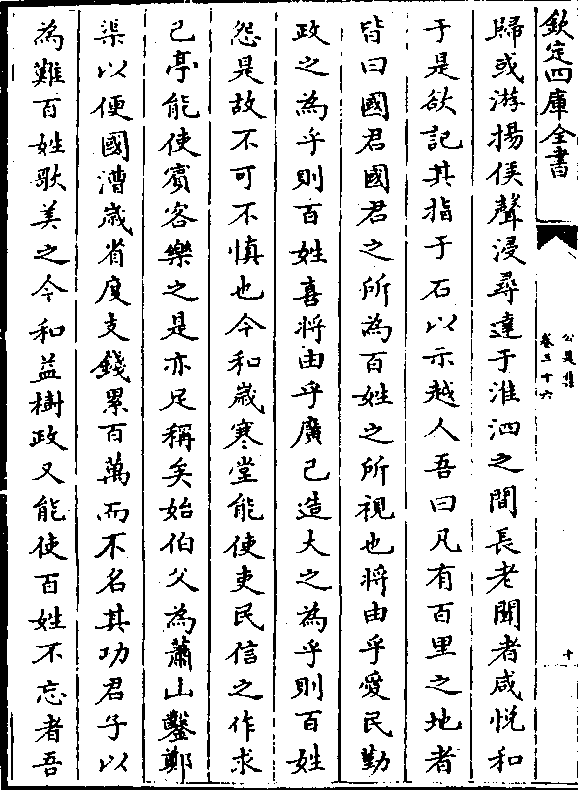 欽定四庫全書
公是集
卷三十六
十
歸或游揚侯聲浸尋達于淮泗之間長老聞者咸悅和
于是欲記其指于石以示越人吾曰凡有百里之地者
皆曰國君國君之所為百姓之所視也將由乎愛民勤
政之為乎則百姓喜將由乎廣己造大之為乎則百姓
怨是故不可不慎也今和歲寒堂能使吏民信之作求
已亭能使賓客樂之是亦足稱矣始伯父為蕭山鑿鄭
渠以便國漕歲省度支錢累百萬而不名其功君子以
為難百姓歌美之今和益樹政又能使百姓不忘者吾